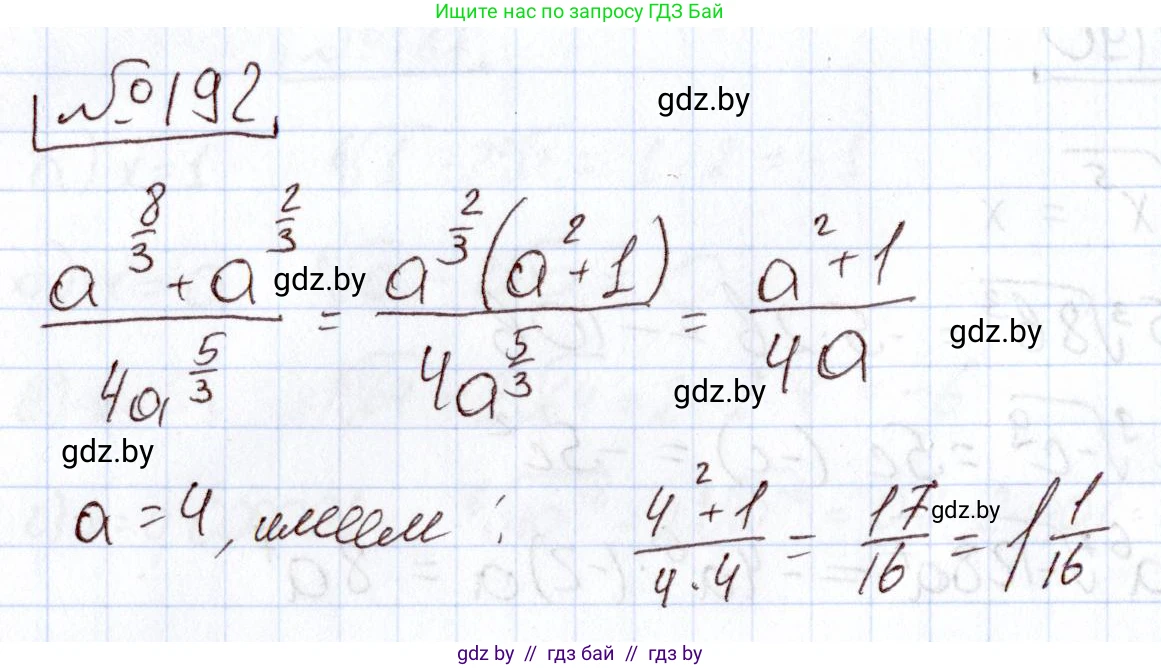 Ищите нас по запросу ГДЗ Бай
№192
gdz.by
a^(8/3) + a^(2/3) / 4a^(5/3) = a^(2/3)(a^2+1) / 4a^(5/3) = a^2+1 / 4a
gdz.by
gdz.by
gdz.by
gdz.by
a=4, имеем: 4^2+1 / 4·4 = 17/16 = 1 1/16
gdz.by
gdz.by // гдз бай // гдз by